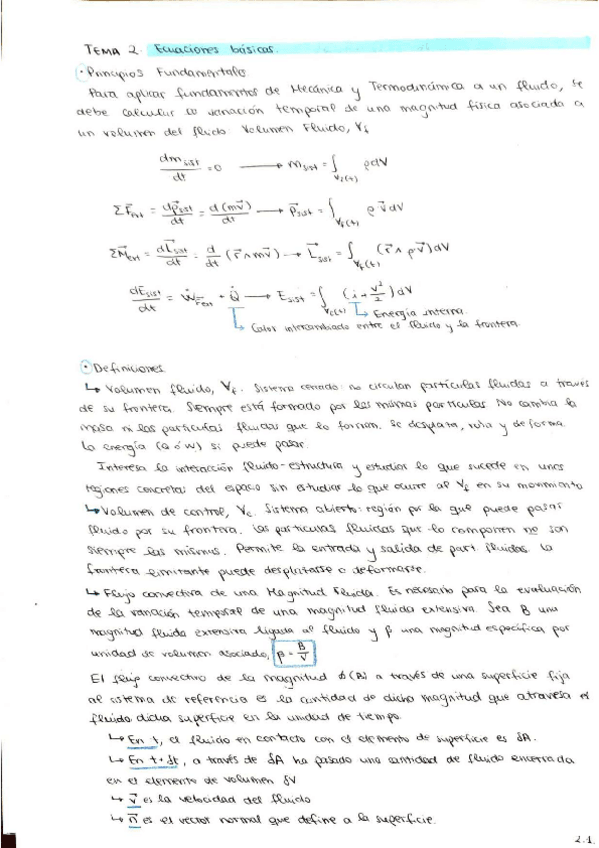 TEMA 2. Ecuaciones básicas.
· Principios Fundamentales
Para aplicar fundamentos de Mecánica y Termodinámica a un fluido, se
debe calcular la variación temporal de una magnitud física asociada a
un volumen del fluido: Volumen Fluido, V_f
dm_sist/dt = 0 → m_sist = ∫_{V_f(t)} ρ dV
ΣF⃗_ext = dp⃗_sist/dt = d(mv⃗)/dt → p⃗_sist = ∫_{V_f(t)} ρ v⃗ dV
ΣM⃗_ext = dL⃗_sist/dt = d/dt (r⃗ ∧ mv⃗) → L⃗_sist = ∫_{V_f(t)} (r⃗ ∧ ρv⃗) dV
dE_sist/dt = Ẇ_F⃗ext + Q̇ → E_sist = ∫_{V_f(t)} (i + v²/2) dV
↳ Energía interna.
↳ Calor intercambiado entre el fluido y la frontera.
· Definiciones.
↳ Volumen fluido, V_f. Sistema cerrado: no circulan partículas fluidas a través
de su frontera. Siempre está formado por las mismas partículas. No cambia la
masa ni las partículas fluidas que lo forman. Se desplaza, rota y deforma.
La energía (Q ó W) sí puede pasar.
Interesa la interacción fluido-estructura y estudiar lo que sucede en unas
regiones concretas del espacio sin estudiar lo que ocurre al V_f en su movimiento
↳ Volumen de control, V_c. Sistema abierto: región por la que puede pasar
fluido por su frontera. Las partículas fluidas que lo componen no son
siempre las mismas. Permite la entrada y salida de part. fluidas. La
frontera limitante puede desplazarse o deformarse.
↳ Flujo convectivo de una Magnitud Fluida. Es necesario para la evaluación
de la variación temporal de una magnitud fluida extensiva. Sea B una
magnitud fluida extensiva ligada al fluido y β una magnitud específica por
unidad de volumen asociado, β = B/V
El flujo convectivo de la magnitud ϕ(B) a través de una superficie fija
al sistema de referencia es la cantidad de dicha magnitud que atraviesa el
fluido dicha superficie en la unidad de tiempo.
↳ En t, el fluido en contacto con el elemento de superficie es δA.
↳ En t+δt, a través de δA ha pasado una cantidad de fluido encerrada
en el elemento de volumen δV
↳ v⃗ es la velocidad del fluido
↳ n⃗ es el vector normal que define a la superficie.
2.1.